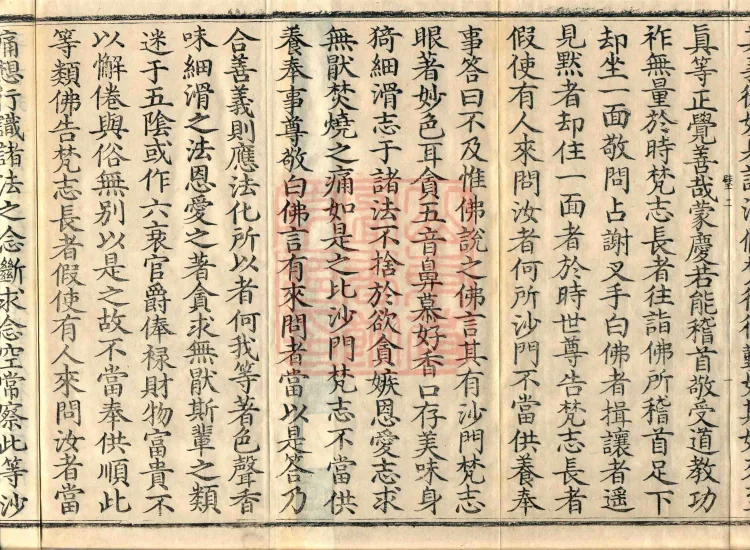 眞等正覺善哉蒙慶若能稽首敬受道教功
祚無量於時梵志長者往詣佛所稽首足下
却坐一面敬問占謝叉手白佛者揖讓者遥
見默者却住一面者於時世尊告梵志長者
假使有人來問汝者何所沙門不當供養奉
事答曰不及惟佛說之佛言其有沙門梵志
眼著妙色耳貪五音鼻慕好香口存美味身
猗細滑志于諸法不捨於欲貪嫉恩愛志求
無猒焚燒之痛如是之比沙門梵志不當供
養奉事尊敬白佛言有來問者當以是答乃
合善義則應法化所以者何我等著色聲香
味細滑之法恩愛之著貪求無猒斯輩之類
迷于五陰或作六衰官爵俸祿財物富貴不
以懈倦與俗無别以是之故不當奉供順此
等類佛告梵志長者假使有人來問汝者當
痛想行識諸法之念斷求念空常察此等沙